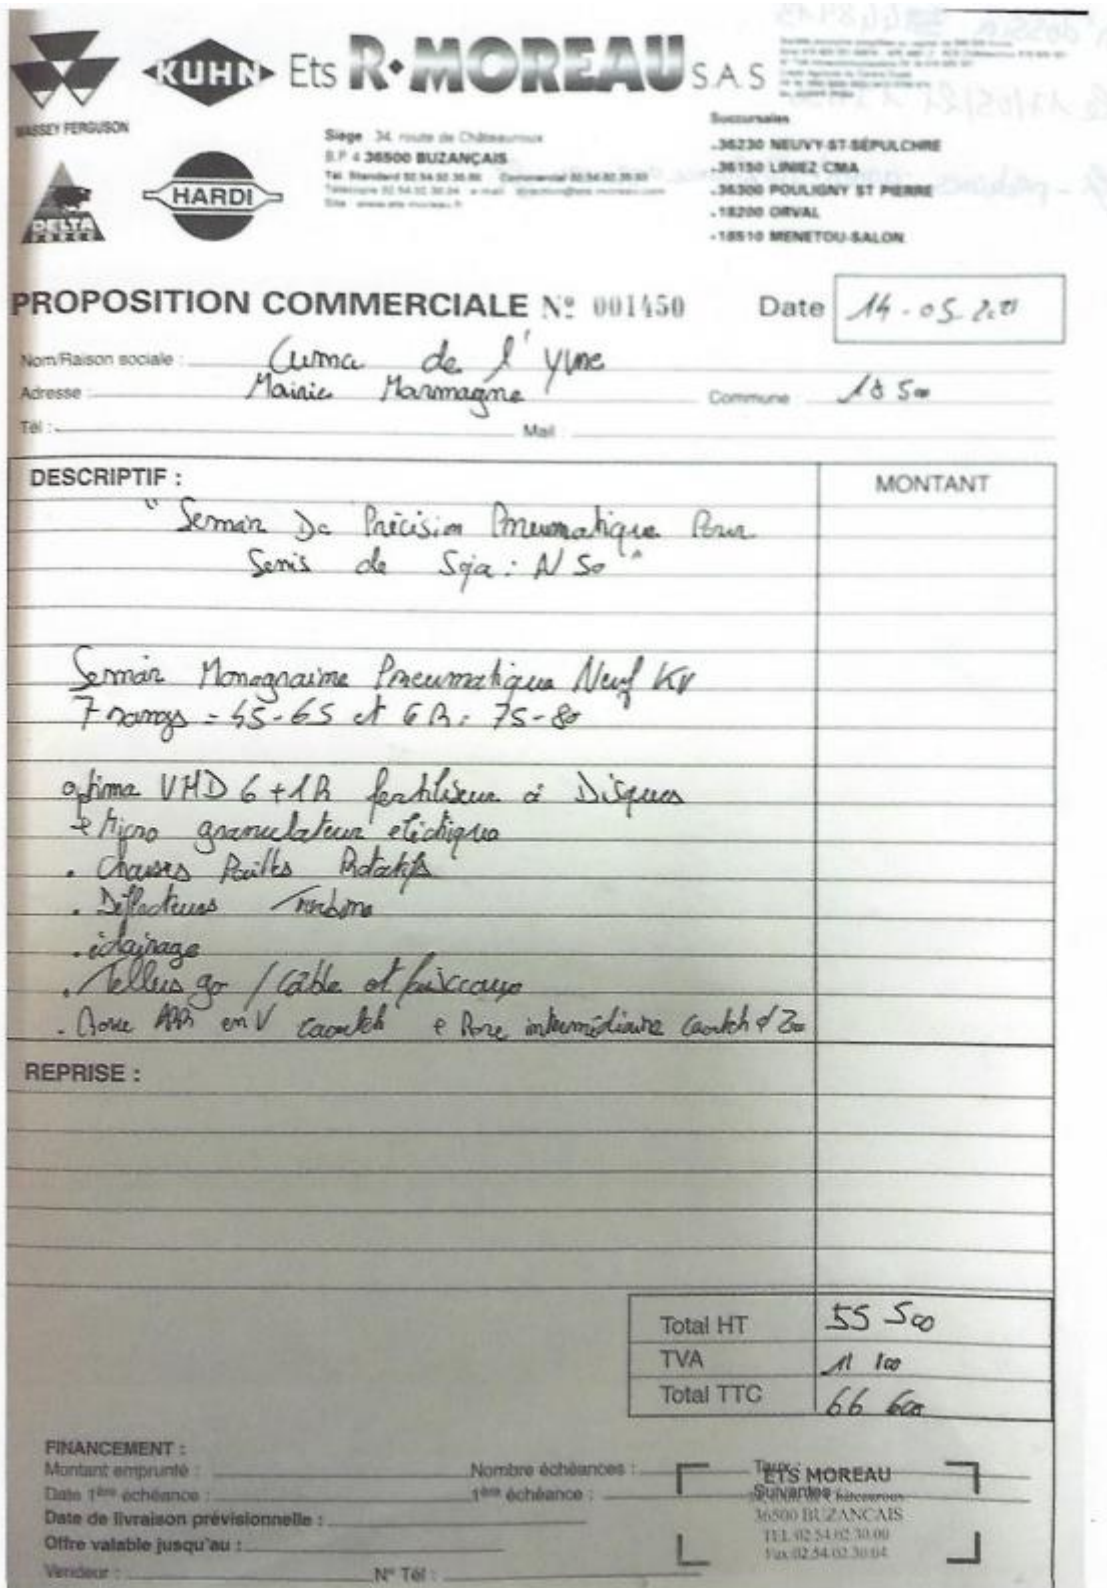 MASSEY FERGUSON
KUHN
Ets R. MOREAU S.A.S
DELTA FORCE
HARDI
Siège : 34, route de Châteauroux
B.P. 4 36500 BUZANÇAIS
Tél. Standard 02.54.02.30.00 Commercial
Succursales
- 36230 NEUVY-ST-SÉPULCHRE
- 36150 LINIEZ CMA
- 36300 POULIGNY ST PIERRE
- 18200 ORVAL
- 18510 MENETOU-SALON
PROPOSITION COMMERCIALE Nº 001450
Date 14-05-2021
Nom/Raison sociale : Cuma de l'Yvne
Adresse : Mairie Marmagne Commune 18 500
Tél : Mail :
DESCRIPTIF : MONTANT
"Semoir De Précision Pneumatique Pour
Semis de Soja : N 50"
Semoir Monograine Pneumatique Neuf KV
7 rangs = 45-65 et 6 R : 75-80
optima VHD 6+1R fertiliseur à Disques
+ Micro granulateur eléctrique
. Chasses Pailles Rotatifs
. Déflecteurs Turbine
. éclairage
. Tellus go / Cable et faisceaux
. Roue ARR en V caoutch + Roue intermédiaire Caoutch
REPRISE :
Total HT 55 500
TVA 11 100
Total TTC 66 600
FINANCEMENT :
Montant emprunté : Nombre échéances : Taux :
Date 1ère échéance : 1ère échéance : Suivantes :
Date de livraison prévisionnelle :
Offre valable jusqu'au :
Vendeur : N° Tél :
ETS MOREAU
36500 BUZANCAIS
TEL 02.54.02.30.00
Fax 02.54.02.30.04